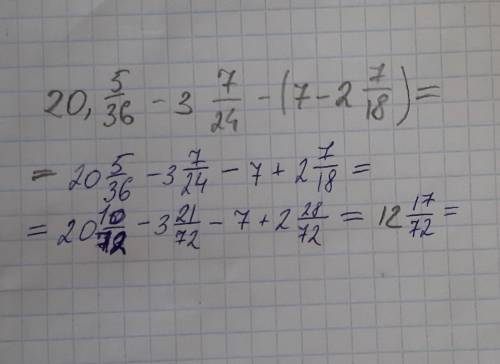 20, 5/36 - 3 7/24 - (7 - 2 7/18) =
= 20 5/36 - 3 7/24 - 7 + 2 7/18 =
= 20 10/72 - 3 21/72 - 7 + 2 28/72 = 12 17/72 =